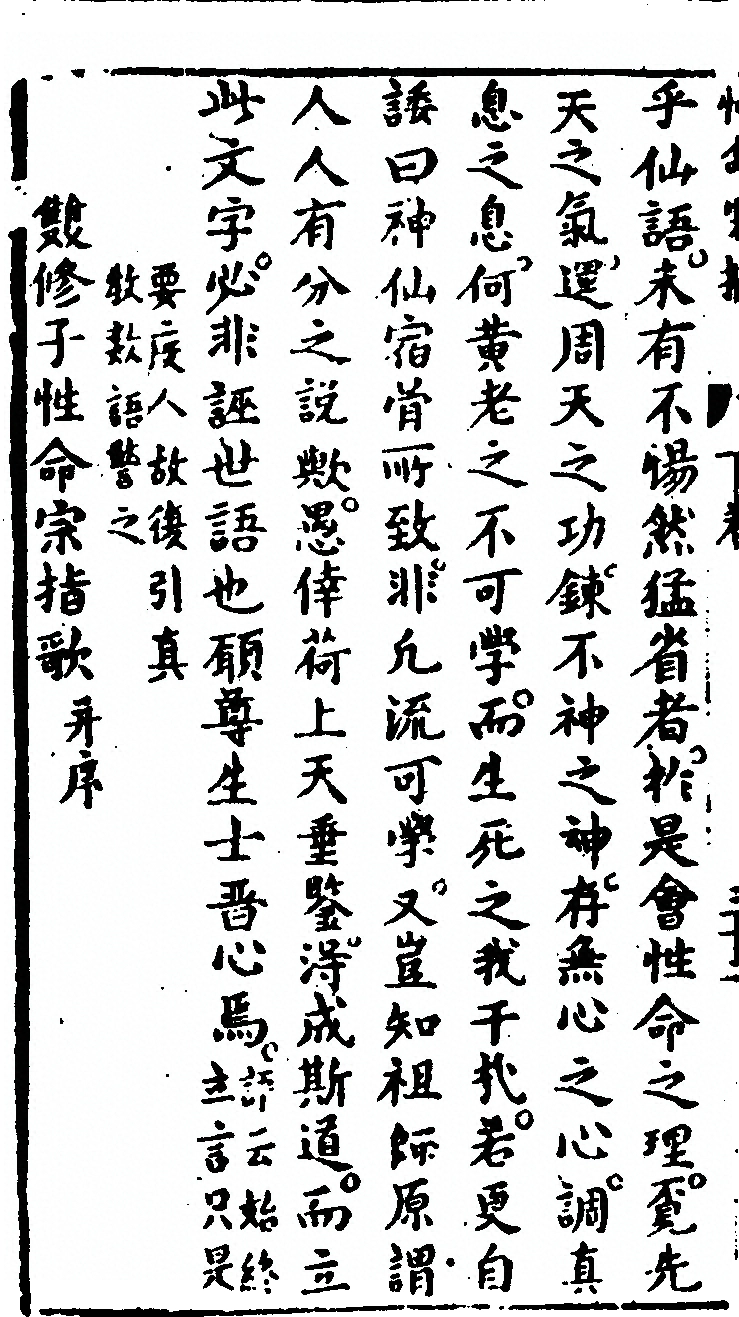 乎仙語未有不惕然猛省者於是會性命之理覔先
天之氣還周天之功鍊不神之神存無心之心調真
息之息何黃老之不可學而生死之我干㢤若更自
諉曰神仙宿骨所致非凢流可學又豈知祖師原謂
人人有分之說歟愚倖荷上天垂鑒得成斯道而立
此文字必非誣世語也願尊生士晋心焉評云始終
立言只是
要度人故復引真
敎歎語警之
雙修子性命宗指歌并序